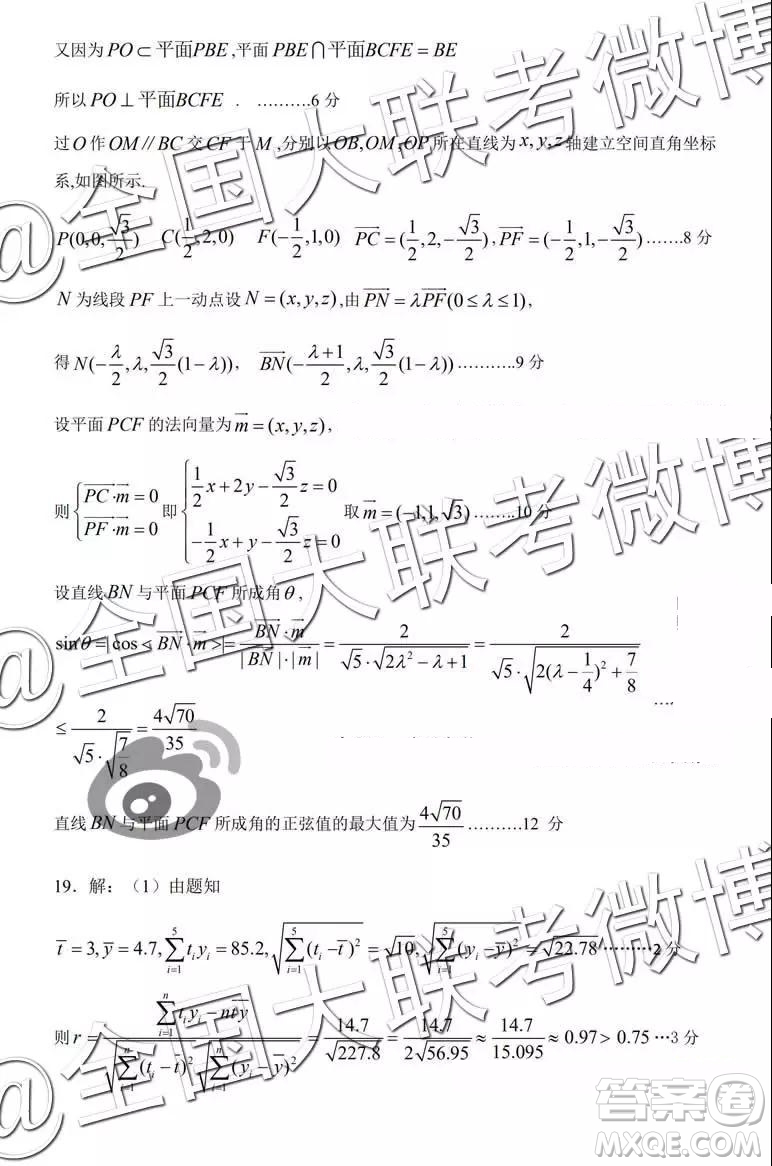 又因为 PO ⊂ 平面PBE ,平面 PBE ⋂ 平面BCFE = BE
所以 PO ⊥ 平面BCFE . ……….6 分
过 O 作 OM // BC 交 CF 于 M ,分别以 OB, OM, OP, 所在直线为 x, y, z 轴建立空间直角坐标
系,如图所示.
P(0,0,√3/2) C(1/2,2,0) F(-1/2,1,0) PC→ = (1/2,2,-√3/2), PF→ = (-1/2,1,-√3/2) …….8 分
N 为线段 PF 上一动点设 N = (x, y, z) ,由 PN→ = λPF→(0 ≤ λ ≤ 1) ,
得 N(-λ/2, λ, √3/2(1-λ)) , BN→(-(λ+1)/2, λ, √3/2(1-λ)) ………..9 分
设平面 PCF 的法向量为 m→ = (x, y, z) ,
则 { PC→·m→ = 0 PF→·m→ = 0 即 { 1/2x + 2y - √3/2z = 0 -1/2x + y - √3/2z = 0 取 m→ = (-1,1,√3) ……..10 分
设直线 BN 与平面 PCF 所成角 θ ,
sinθ = |cos < BN→·m→ >| = BN→·m→/|BN→|·|m→| = 2/(√5·√(2λ²-λ+1)) = 2/(√5·√(2(λ-1/4)²+7/8))
≤ 2/(√5·√(7/8)) = 4√70/35
直线 BN 与平面 PCF 所成角的正弦值的最大值为 4√70/35 ……….12 分
19．解：（1）由题知
t̄ = 3, ȳ = 4.7, ∑_{i=1}^{5} t_i y_i = 85.2, √(∑_{i=1}^{5}(t_i - t̄)²) = √10, √(∑_{i=1}^{5}(y_i - ȳ)²) = √22.78 ………2 分
则 r = (∑_{i=1}^{n} t_i y_i - nt̄ȳ)/(√(∑_{i=1}^{n}(t_i - t̄)²)√(∑_{i=1}^{n}(y_i - ȳ)²)) = 14.7/√227.8 = 14.7/2√56.95 ≈ 14.7/15.095 ≈ 0.97 > 0.75 …3 分
@全国大联考微博
@全国大联考微博
@全国大联考微博
答案卷
MXQE.COM